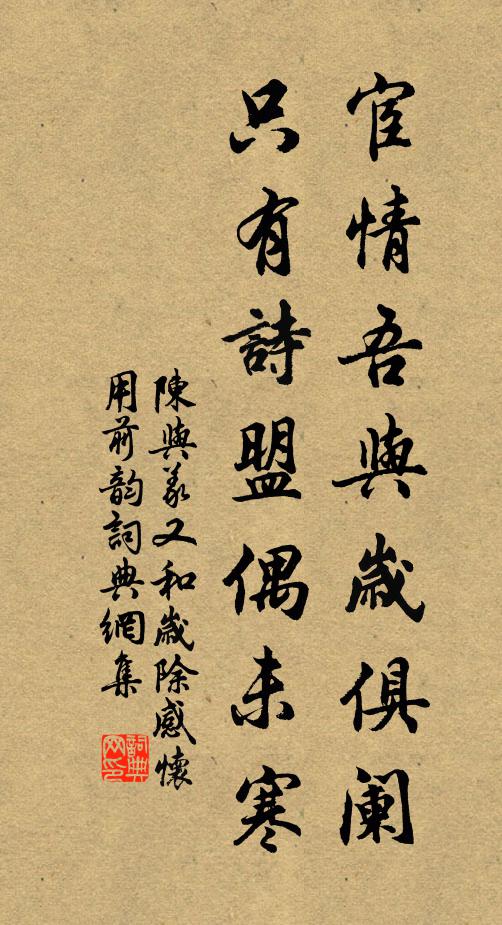 宦情吾與歲俱闌
只有詩盟偶未寒
陳與義又和歲除感懷
用前韵詞典網集
詞典
网印